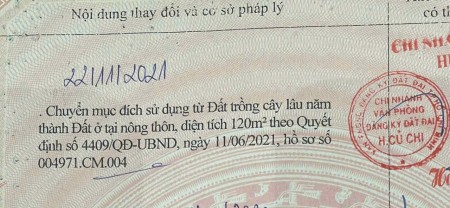 Nội dung thay đổi và cơ sở pháp lý
có t
CHI NH
H
22/11/2021
. Chuyển mục đích sử dụng từ Đất trồng cây lâu năm
thành Đất ở tại nông thôn, diện tích 120m² theo Quyết
định số 4409/QĐ-UBND, ngày 11/06/2021, hồ sơ số
004971.CM.004
CHI NHÁNH
VĂN PHÒNG
ĐĂNG KÝ ĐẤT ĐAI
H.CỦ CHI